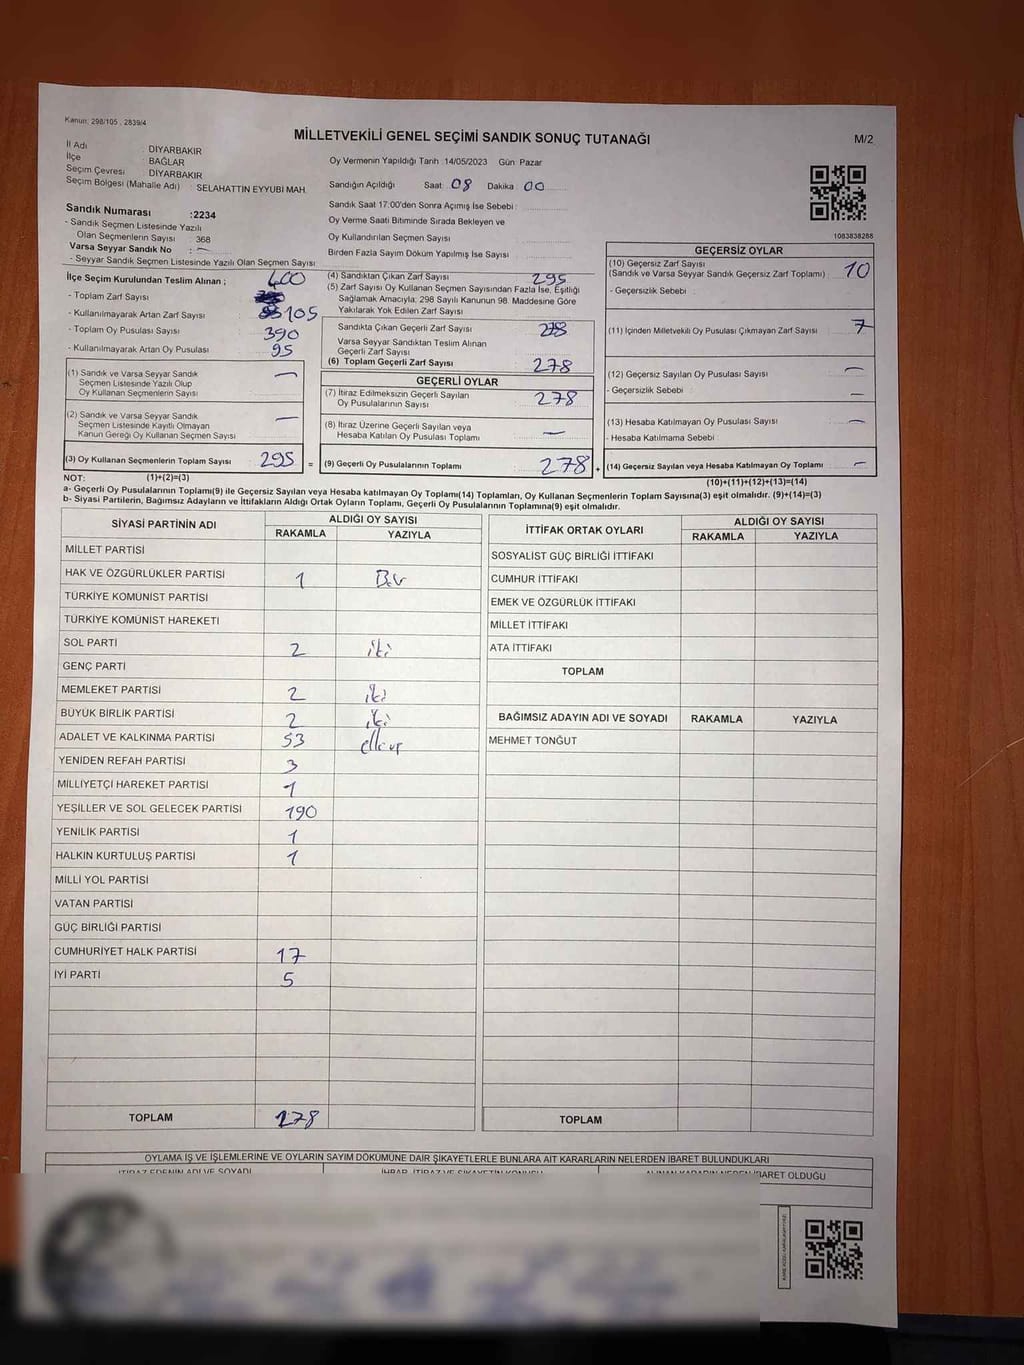 Kanun: 298/105 , 2839/4
MİLLETVEKİLİ GENEL SEÇİMİ SANDIK SONUÇ TUTANAĞI
M/2
İl Adı : DİYARBAKIR
İlçe : BAĞLAR
Seçim Çevresi : DİYARBAKIR
Seçim Bölgesi (Mahalle Adı) : SELAHATTİN EYYUBİ MAH.
Sandık Numarası :2234
- Sandık Seçmen Listesinde Yazılı
Olan Seçmenlerin Sayısı : 368
Varsa Seyyar Sandık No : —
- Seyyar Sandık Seçmen Listesinde Yazılı Olan Seçmen Sayısı
Oy Vermenin Yapıldığı Tarih :14/05/2023 Gün Pazar
Sandığın Açıldığı Saat: 08 Dakika 00
Sandık Saat 17:00'den Sonra Açımış İse Sebebi :
Oy Verme Saati Bitiminde Sırada Bekleyen ve
Oy Kullandırılan Seçmen Sayısı :
Birden Fazla Sayım Döküm Yapılmış İse Sayısı :
1083838288
İlçe Seçim Kurulundan Teslim Alınan ;
- Toplam Zarf Sayısı : 400
- Kullanılmayarak Artan Zarf Sayısı : 105
- Toplam Oy Pusulası Sayısı : 390
- Kullanılmayarak Artan Oy Pusulası : 95
(1) Sandık ve Varsa Seyyar Sandık
Seçmen Listesinde Yazılı Olup
Oy Kullanan Seçmenlerin Sayısı : —
(2) Sandık ve Varsa Seyyar Sandık
Seçmen Listesinde Kayıtlı Olmayan
Kanun Gereği Oy Kullanan Seçmen Sayısı : —
(3) Oy Kullanan Seçmenlerin Toplam Sayısı : 295 =
(4) Sandıktan Çıkan Zarf Sayısı : 295
(5) Zarf Sayısı Oy Kullanan Seçmen Sayısından Fazla İse, Eşitliği
Sağlamak Amacıyla; 298 Sayılı Kanunun 98. Maddesine Göre
Yakılarak Yok Edilen Zarf Sayısı :
Sandıkta Çıkan Geçerli Zarf Sayısı : 278
Varsa Seyyar Sandıktan Teslim Alınan
Geçerli Zarf Sayısı :
(6) Toplam Geçerli Zarf Sayısı : 278
GEÇERLİ OYLAR
(7) İtiraz Edilmeksizin Geçerli Sayılan
Oy Pusulalarının Sayısı : 278
(8) İtiraz Üzerine Geçerli Sayılan veya
Hesaba Katılan Oy Pusulası Toplamı : —
(9) Geçerli Oy Pusulalarının Toplamı : 278 +
GEÇERSİZ OYLAR
(10) Geçersiz Zarf Sayısı
(Sandık ve Varsa Seyyar Sandık Geçersiz Zarf Toplamı) : 10
- Geçersizlik Sebebi :
(11) İçinden Milletvekili Oy Pusulası Çıkmayan Zarf Sayısı : 7
(12) Geçersiz Sayılan Oy Pusulası Sayısı : —
- Geçersizlik Sebebi : —
(13) Hesaba Katılmayan Oy Pusulası Sayısı : —
- Hesaba Katılmama Sebebi :
(14) Geçersiz Sayılan veya Hesaba Katılmayan Oy Toplamı : —
NOT: (1)+(2)=(3) (10)+(11)+(12)+(13)=(14)
a- Geçerli Oy Pusulalarının Toplamı(9) ile Geçersiz Sayılan veya Hesaba katılmayan Oy Toplamı(14) Toplamları, Oy Kullanan Seçmenlerin Toplam Sayısına(3) eşit olmalıdır. (9)+(14)=(3)
b- Siyasi Partilerin, Bağımsız Adayların ve İttifakların Aldığı Ortak Oyların Toplamı, Geçerli Oy Pusulalarının Toplamına(9) eşit olmalıdır.
SİYASİ PARTİNİN ADI ALDIĞI OY SAYISI
RAKAMLA YAZIYLA
MİLLET PARTİSİ
HAK VE ÖZGÜRLÜKLER PARTİSİ 1 Bir
TÜRKİYE KOMÜNİST PARTİSİ
TÜRKİYE KOMÜNİST HAREKETİ
SOL PARTİ 2 iki
GENÇ PARTİ
MEMLEKET PARTİSİ 2 iki
BÜYÜK BİRLİK PARTİSİ 2 iki
ADALET VE KALKINMA PARTİSİ 53
YENİDEN REFAH PARTİSİ 3
MİLLİYETÇİ HAREKET PARTİSİ 1
YEŞİLLER VE SOL GELECEK PARTİSİ 190
YENİLİK PARTİSİ 1
HALKIN KURTULUŞ PARTİSİ 1
MİLLİ YOL PARTİSİ
VATAN PARTİSİ
GÜÇ BİRLİĞİ PARTİSİ
CUMHURİYET HALK PARTİSİ 17
İYİ PARTİ 5
TOPLAM 278
İTTİFAK ORTAK OYLARI ALDIĞI OY SAYISI
RAKAMLA YAZIYLA
SOSYALİST GÜÇ BİRLİĞİ İTTİFAKI
CUMHUR İTTİFAKI
EMEK VE ÖZGÜRLÜK İTTİFAKI
MİLLET İTTİFAKI
ATA İTTİFAKI
TOPLAM
BAĞIMSIZ ADAYIN ADI VE SOYADI RAKAMLA YAZIYLA
MEHMET TONĞUT
TOPLAM
OYLAMA İŞ VE İŞLEMLERİNE VE OYLARIN SAYIM DÖKÜMÜNE DAİR ŞİKAYETLERLE BUNLARA AİT KARARLARIN NELERDEN İBARET BULUNDUKLARI
İTİRAZ EDENİN ADI VE SOYADI İHBAR, İTİRAZ VE ŞİKAYETİN KONUSU ALINAN KARARIN NEDEN İBARET OLDUĞU